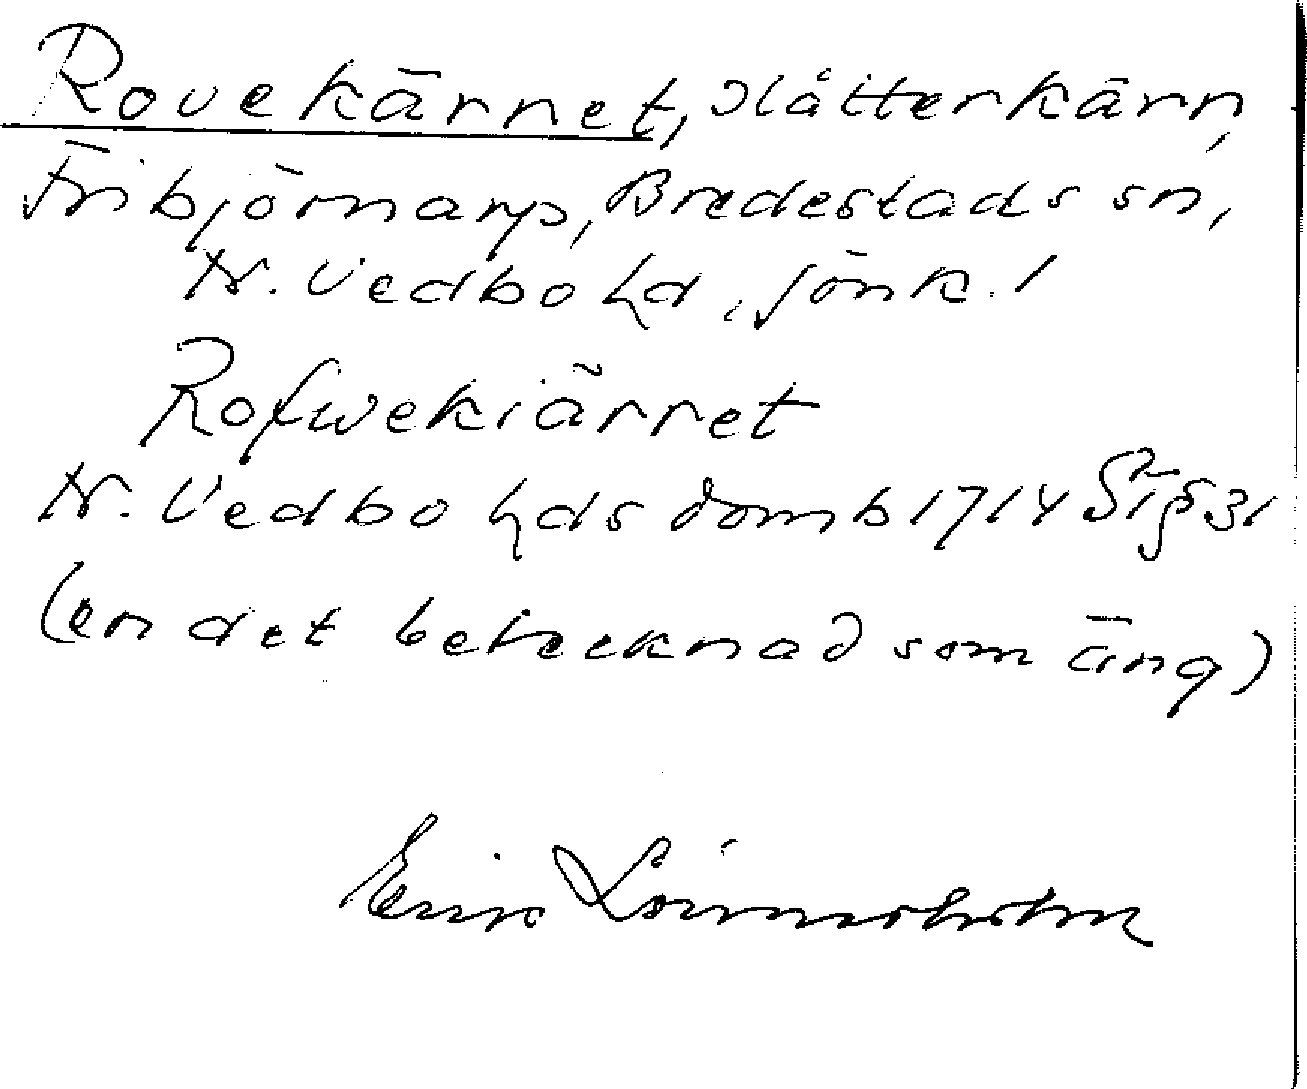 Rovekärret, slåtterkärr,
Fribjörnarp, Bredestads sn,
N. Vedbo hd, Jönk. l
Rofwekiärret
N. Vedbo hds domb 1714 § 31
(en det betecknad som äng)
Erik